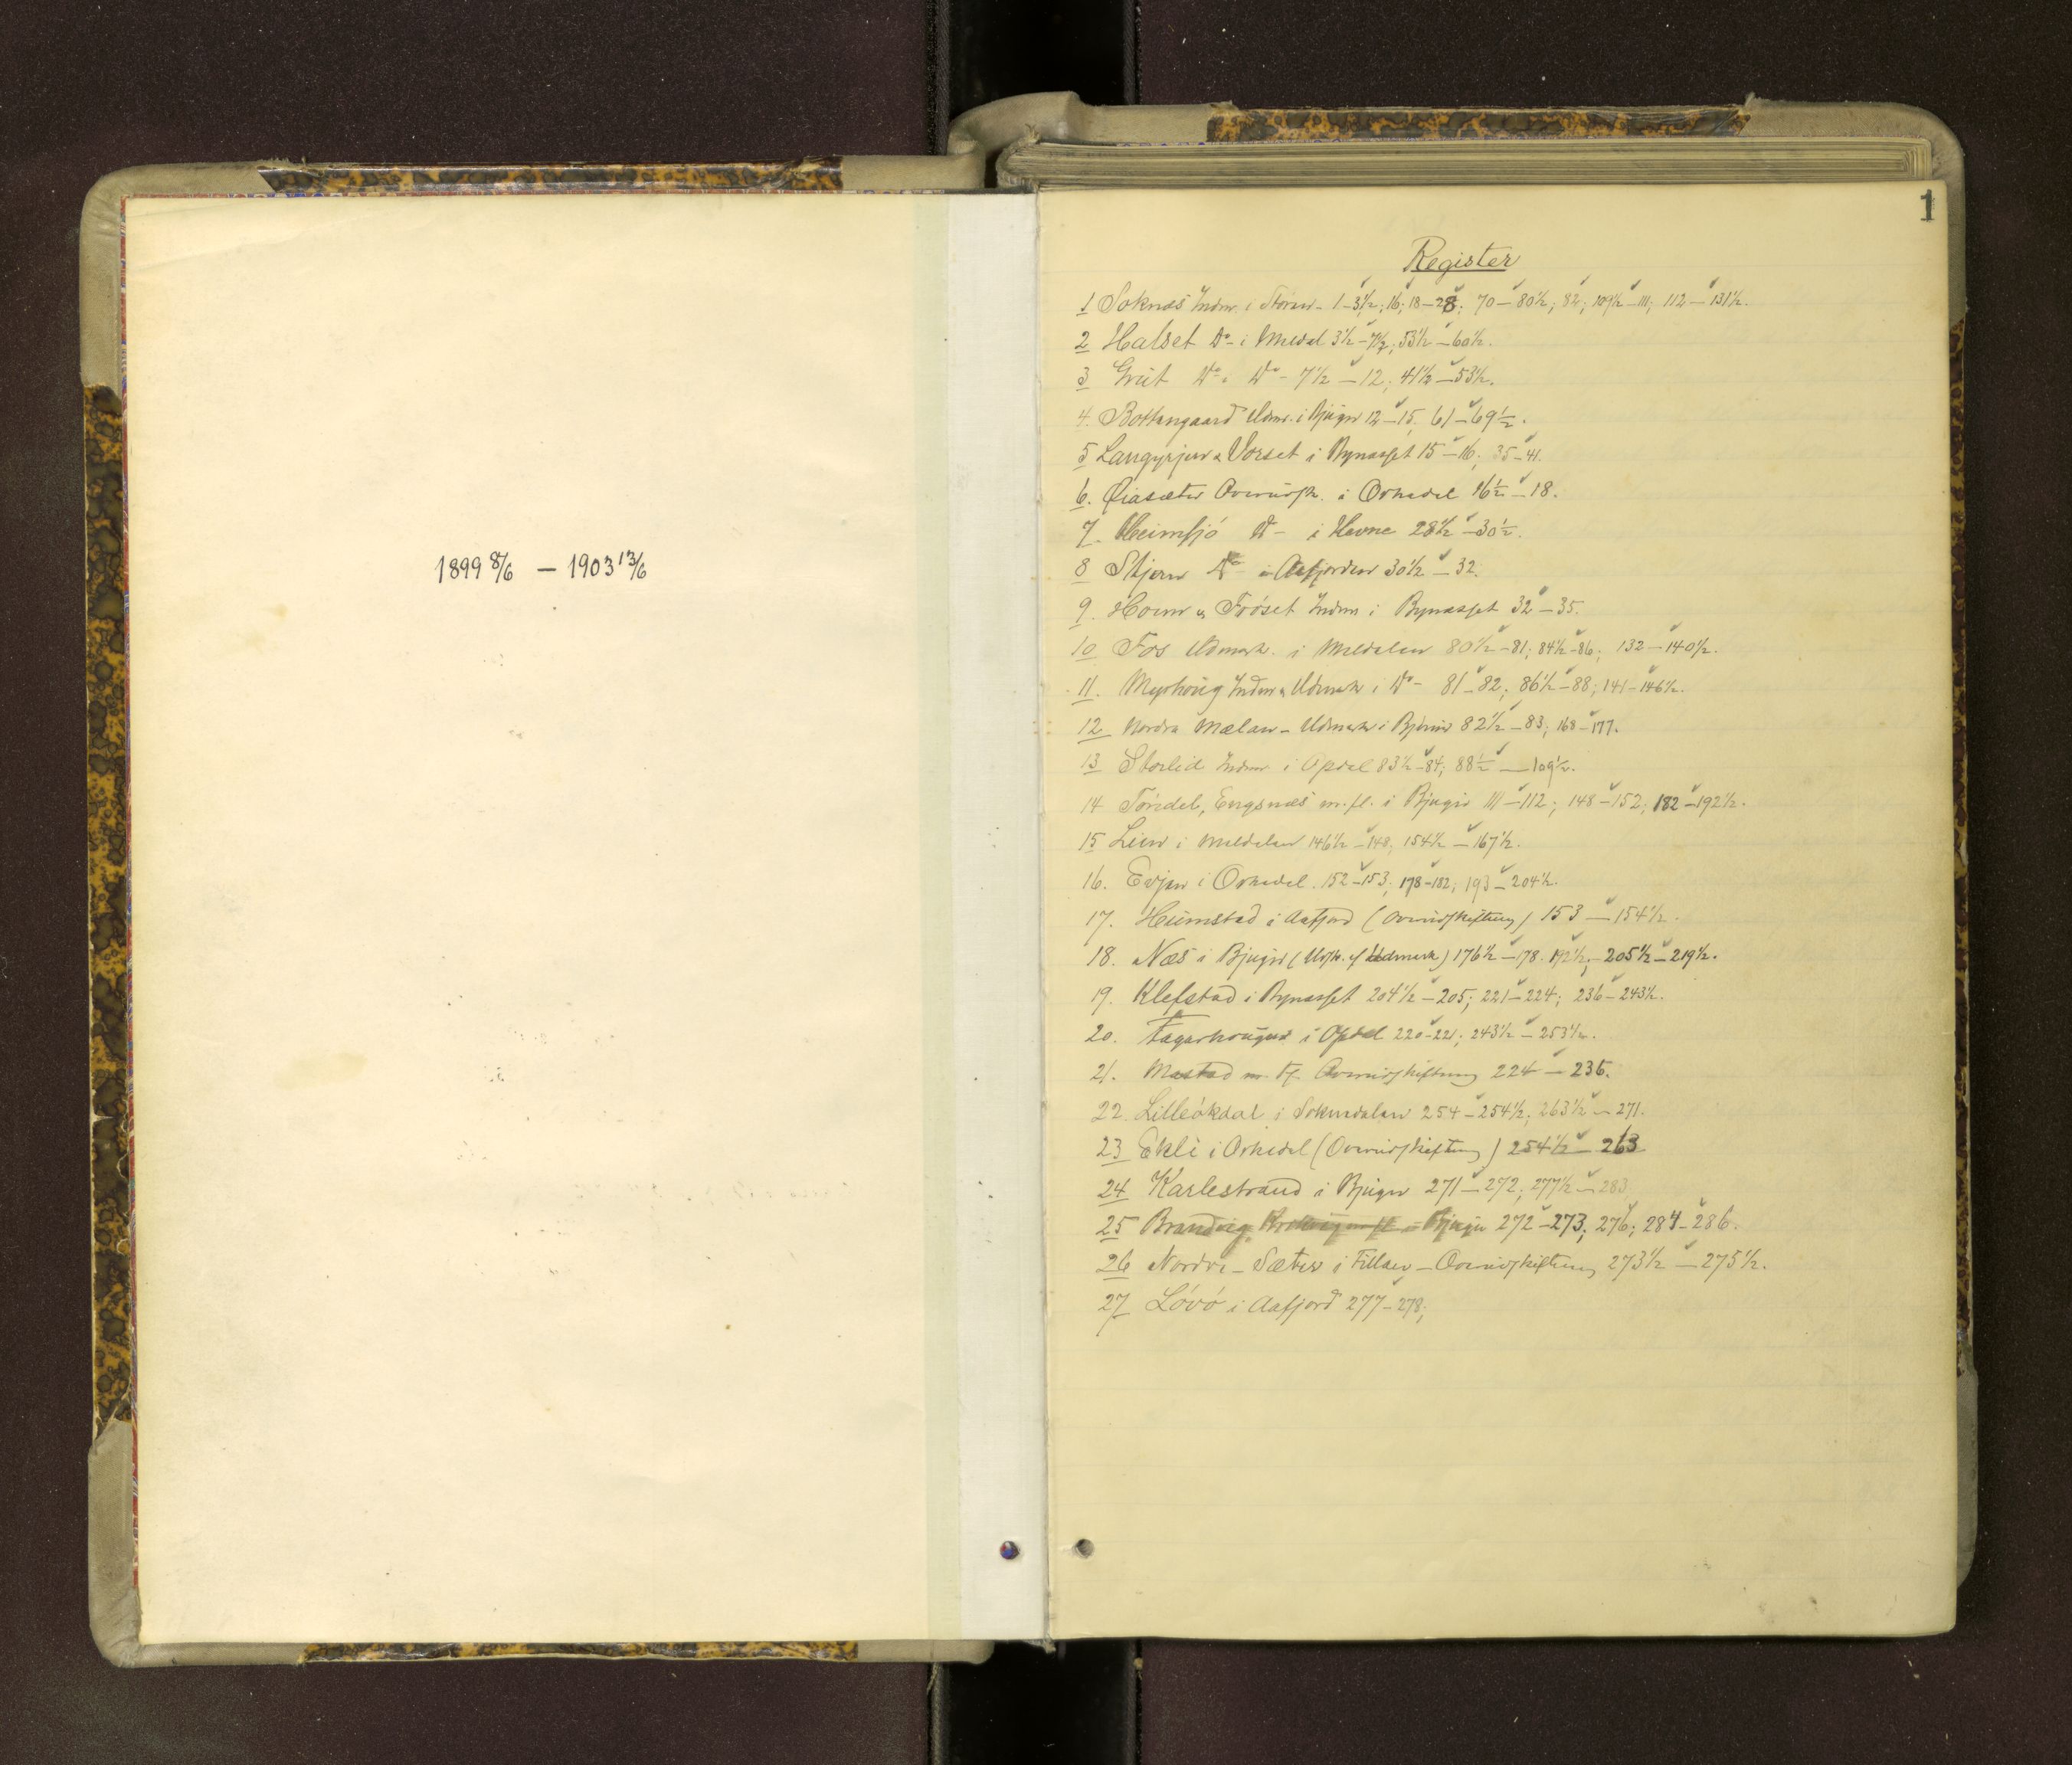 1899 8/6 — 1903 13/6
1
Register
1 Soknæs Indm. i Støren - 1-3½; 16; 18-28; 70-80½; 82; 109½-111; 112-131½.
2 Halset Do- i Meldal 3½-7½; 53½-60½.
3 Grut Do i Do- 7½-12; 41½-53½.
4. Botngaard Udmr. i Bjugn 12-15; 61-69½.
5 Langørjen & Vorset i Bynesset 15-16; 35-41.
6. Øiasæter Overudsk. i Orkedal 16½-18.
7. Heimsjø Do- i Hevne 28½-30½.
8 Stjern Do- i Aafjorden 30½-32.
9. & Frøset Indm i Bynesset 32-35.
10 Fos Udmark. i Meldalen 80½-81; 84½-86; 132-140½.
11. Myrhoug Indm & Udmark i Do- 81-82; 86½-88; 141-146½.
12 Nordre Mælan - Udmark i 82½-83; 168-177.
13 Storlid Indm. i Opdal 83½-84; 88½-109½.
14 Tøndel, Engsnæs m.fl. i Bjugn 111-112; 148-152; 182-192½.
15 Lien i Meldalen 146½-148; 154½-167½.
16. Evjen i Orkedal. 152-153; 178-182; 193-204½.
17. Heimstad i Aafjord (Overudskiftning) 153-154½.
18. Næs i Bjugn (Udsk. af Udmark) 176½-178. 192½; 205½-219½.
19. Klefstad i Bynesset 204½-205; 221-224; 236-243½.
20. Fagerhoug i Opdal 220-221; 243½-253½.
21. Mastad m. fl. Overudskiftning 224-235.
22. Lilleøkdal i Soknedalen 254-254½; 263½-271.
23 Ekli i Orkedal (Overudskiftning) 254½-263
24 Karlestrand i Bjugn 271-272; 277½-283
25 Brandvig Bjugn 272-273; 276; 284-286.
26 Nordre Sæter i Fillan - Overudskiftning 273½-275½.
27 Løvø i Aafjord 277-278;